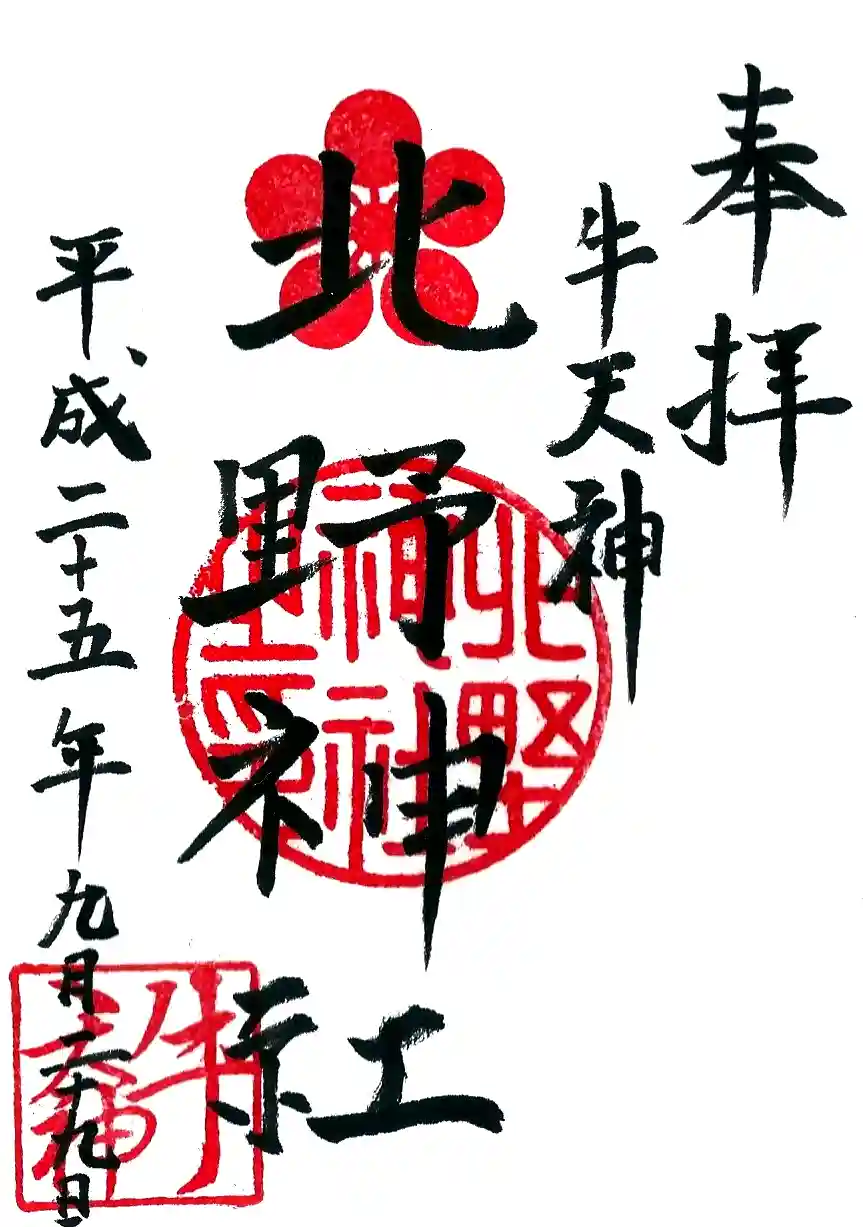 奉拝
牛天神
北野神社
平成二十五年九月二十九日
北野
神社
牛天神